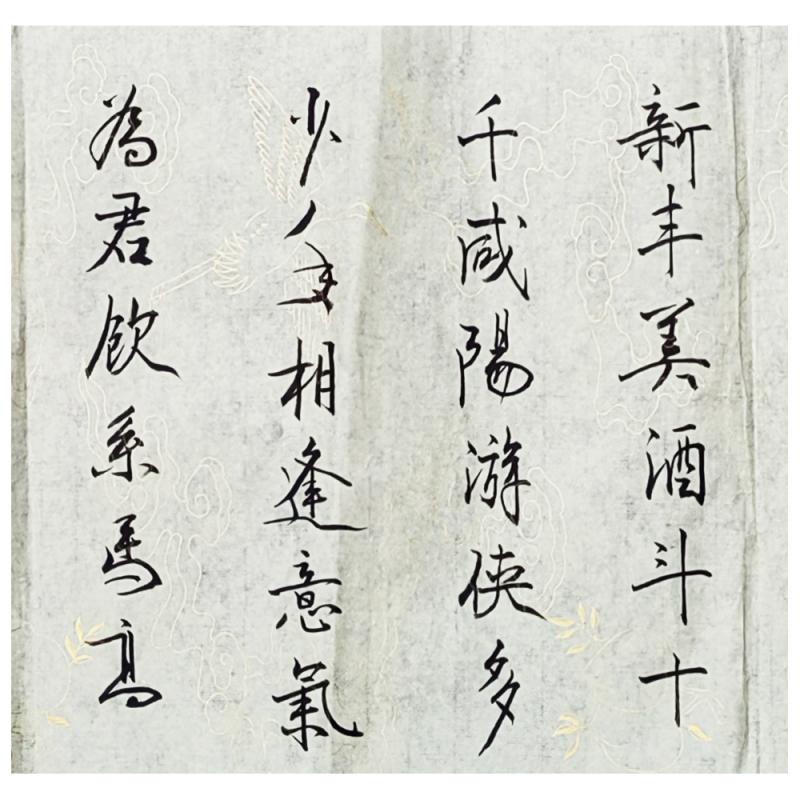 新丰美酒斗十
千咸陽游侠多
少年相逢意氣
為君飲系馬高